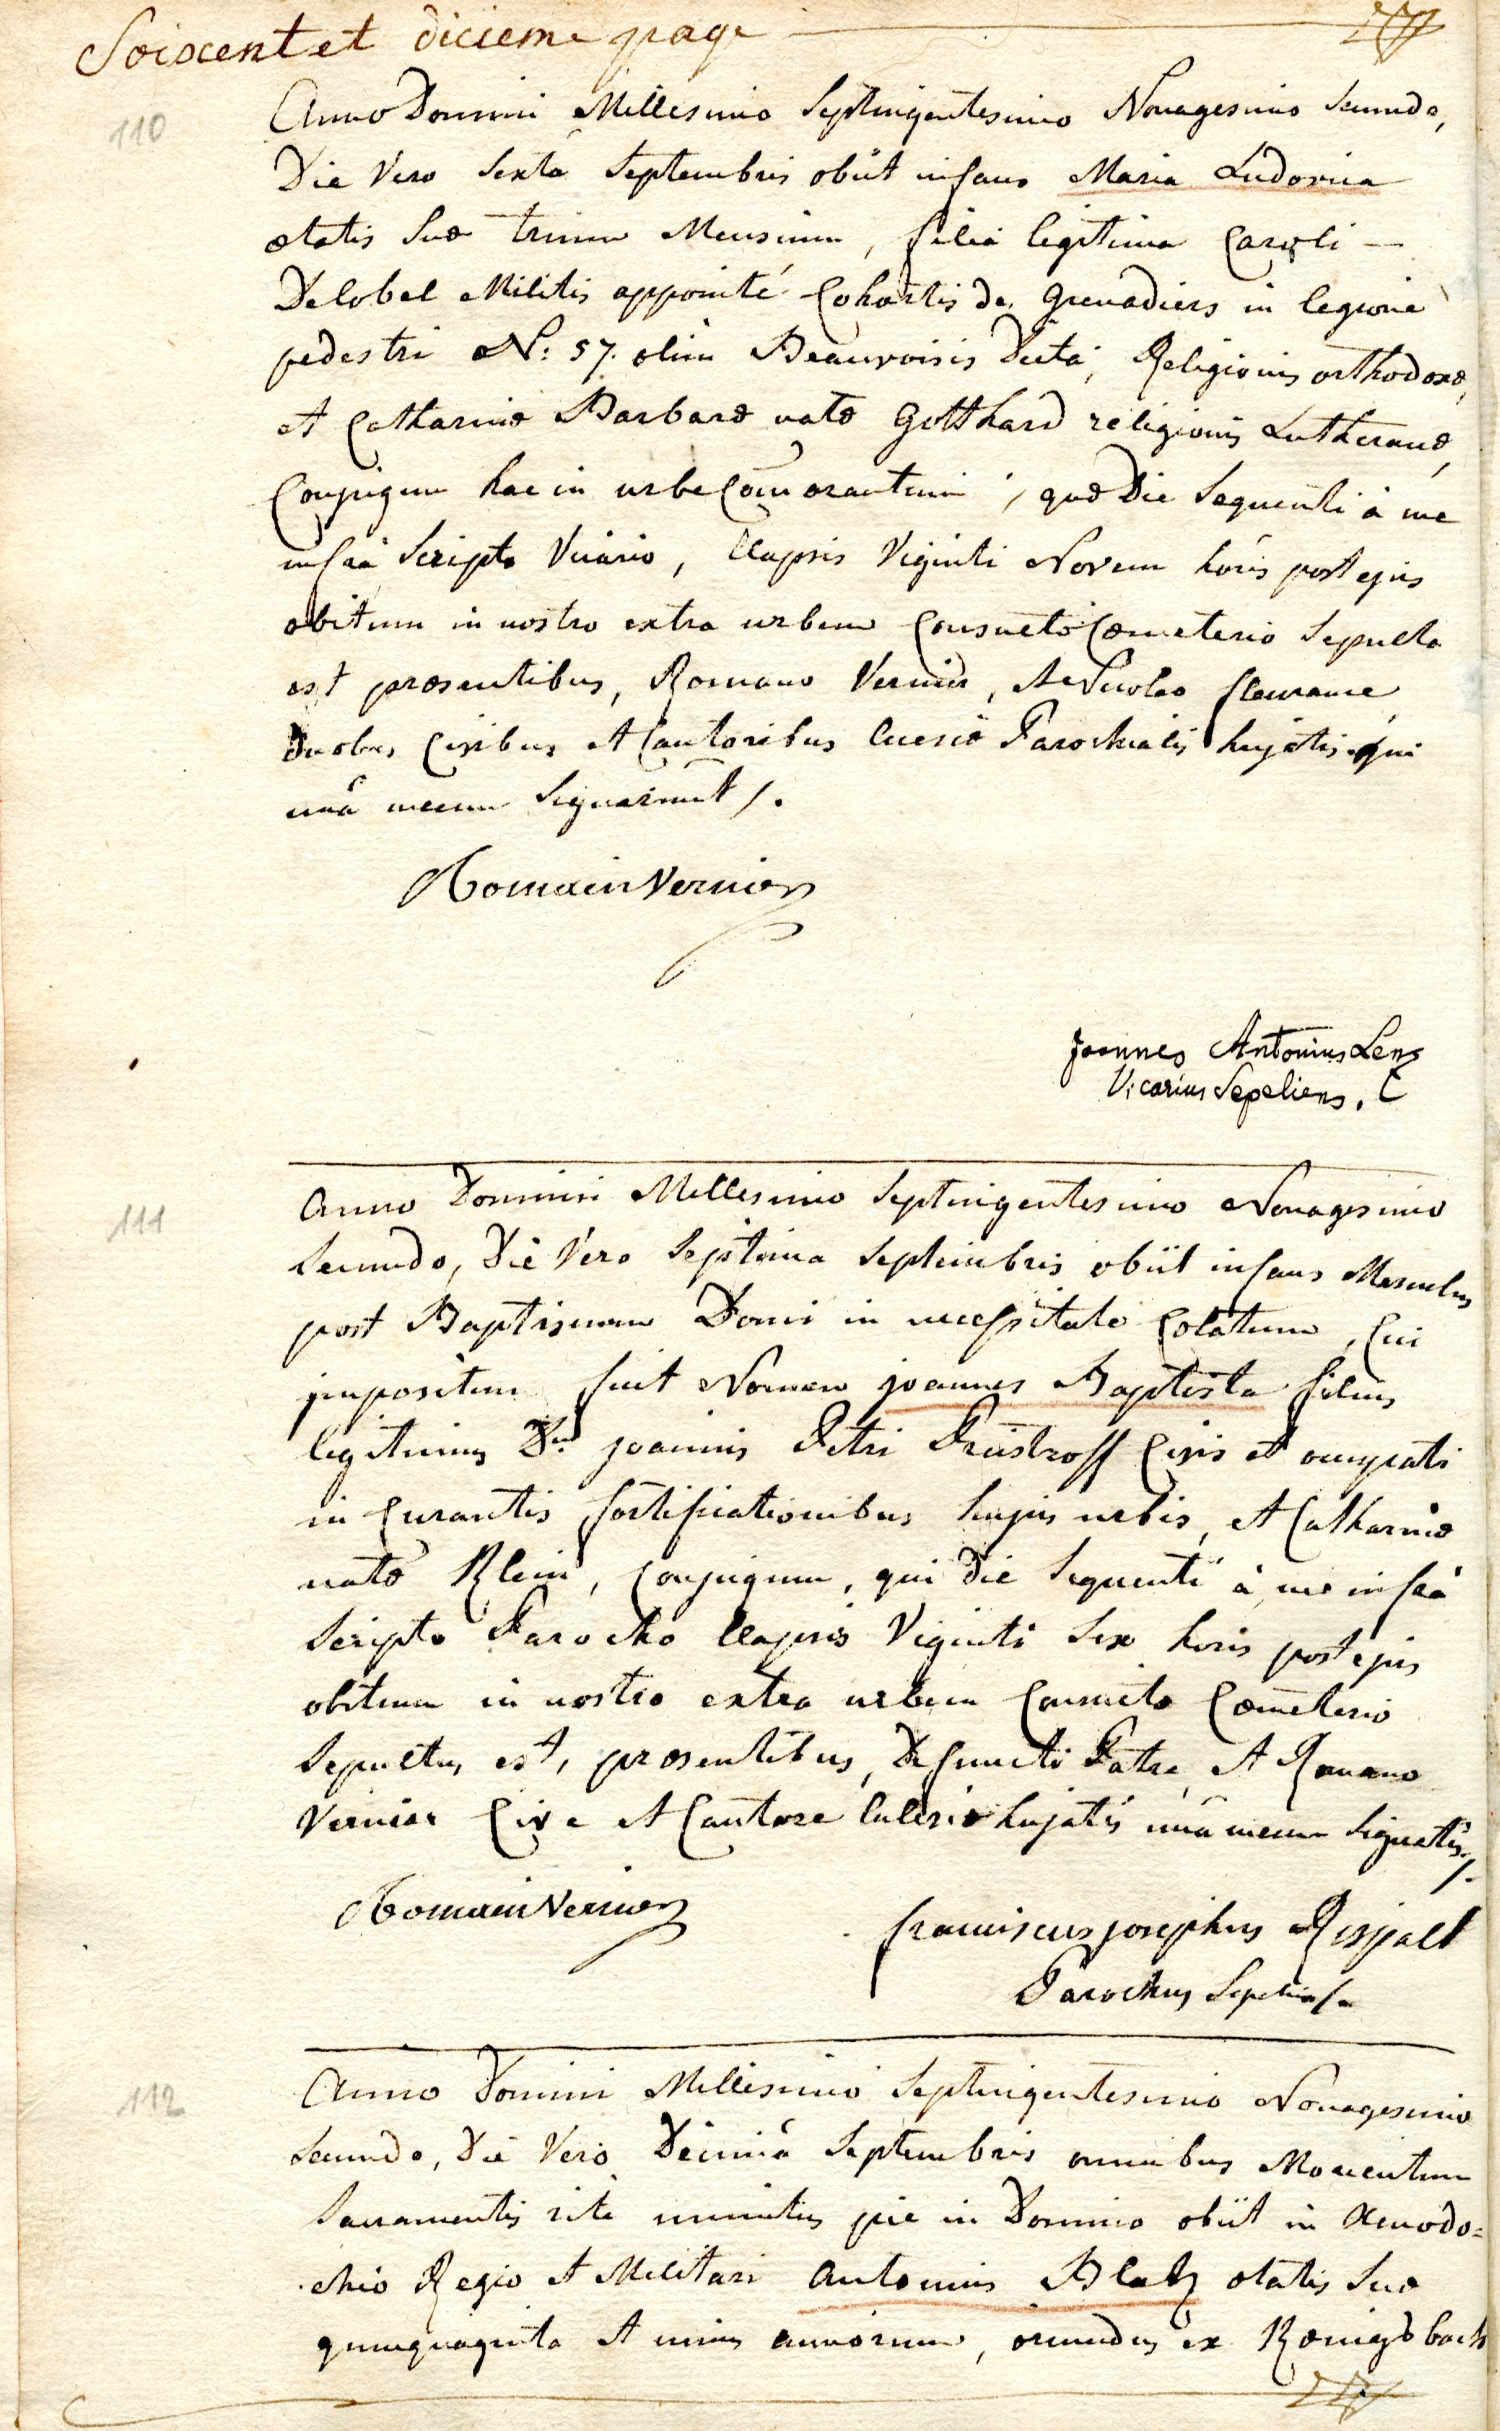 Soixent et dicieme page
110
Anno Domini Millesimo Septingentesimo Nonagesimo Secundo,
Die Vero Sexta Septembris obiit infans Maria Ludovica
ætatis suæ trium Mensium, filia legitima Caroli —
Delobel Militis appointé Cohortis de Grenadiers in legione
pedestri N: 57. olim Beauvoisis dicta, Religionis orthodoxæ,
et Catharinæ Barbaræ natæ Gotthard religionis Lutheranæ,
Conjugum hac in urbe Com̄orantium, quæ Die Sequenti à me
infrà Scripto Vicario, Elapsis Viginti Novem horis post ejus
obitum in nostro extra urbem Consueto Cœmeterio Sepulta
est præsentibus, Romano Vernier, et Nicolao fleurance,
duobus Civibus et Cantoribus Ecclesiæ Parochialis hujatis qui
unà mecum Signarunt /.
Romain Vernier
Joannes Antonius Lenz
Vicarius Sepeliens.
111
Anno Domini Millesimo Septingentesimo Nonagesimo
Secundo, Die Vero Septima Septembris obiit infans Masculus
post Baptismum Domi in necessitate Colatum, Cui
impositum fuit Nomen joannes Baptista filius
legitimus Dni joannis Petri Freistroff Civis et occupati
in Curantis fortificationibus hujus urbis, et Catharinæ
natæ Klein, Conjugum, qui die Sequenti à me infrà
Scripto Parocho Elapsis Viginti Sex horis post ejus
obitum in nostro extra urbem Consueto Cœmeterio
Sepultus est, præsentibus, Defuncti Patre, et Romano
Vernier Cive et Cantore Ecclesiæ hujatis unà mecum Signatis /.
Romain Vernier
franciscus josephus Rispalt
Parochus Sepeliens
112
Anno Domini Millesimo Septingentesimo Nonagesimo
Secundo, Die Vero Decimâ Septembris omnibus Morientium
Sacramentis rite munitus pie in Domino obiit in Xenodo=
chio Regio et Militari Antonius Blatz ætatis suæ
quinquaginta et unius annorum, oriundus ex Kœnigsbach